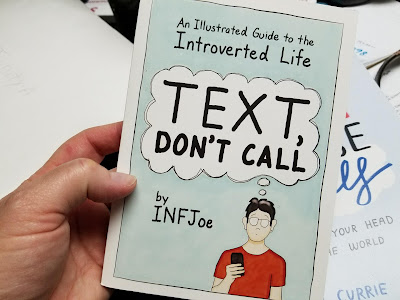 An Illustrated Guide to the
Introverted Life
TEXT,
DON'T CALL
by
INFJoe
YOUR HEAD
THE WORLD
CURRIE